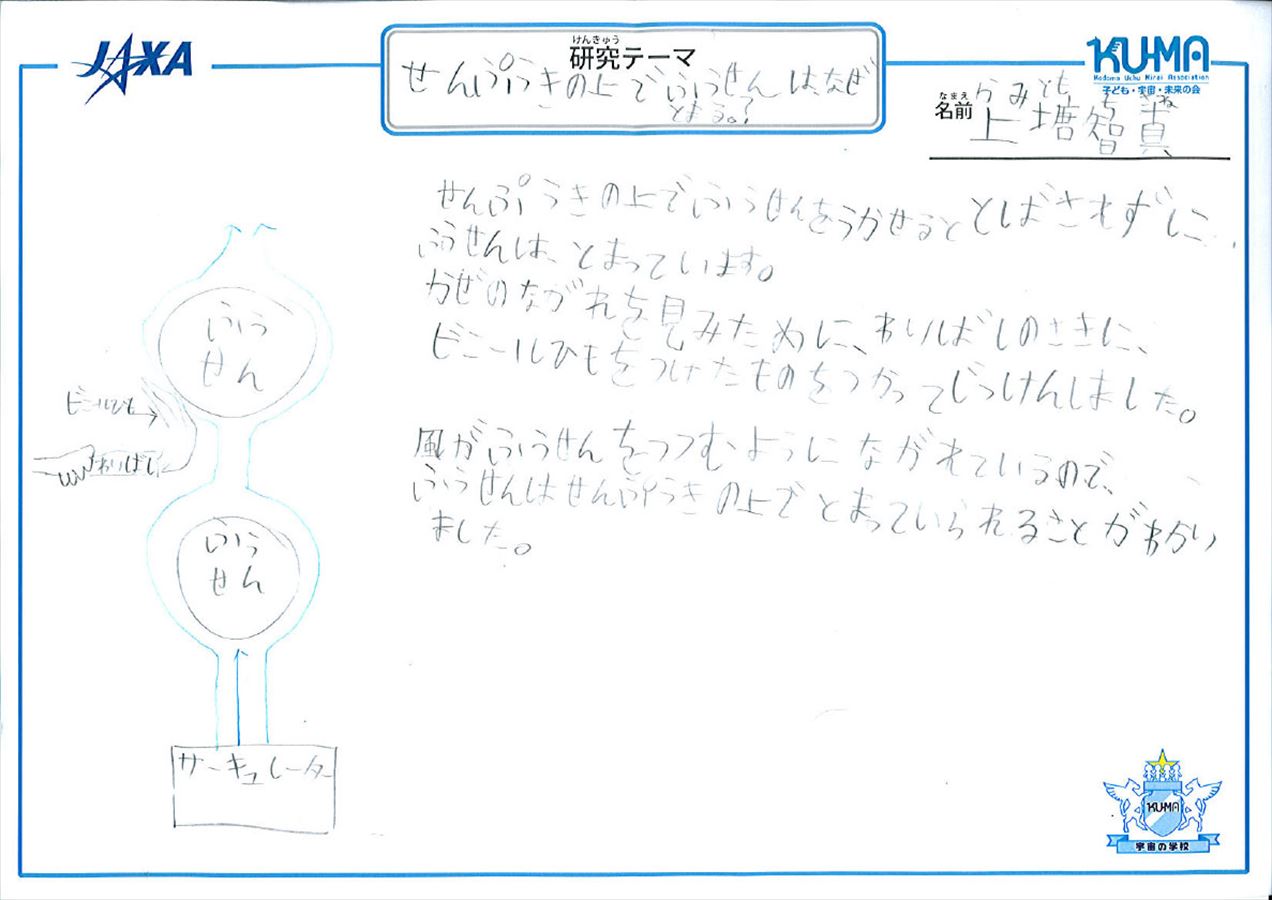 JAXA
けんきゅう
研究テーマ
せんぷうきの上でふうせんは、なぜ
とまる。?
KU-MA
Kodomo Uchu Mirai Association
子ども・宇宙・未来の会
なまえ
名前
上塘智真
せんぷうきの上でふうせんをうかせるととばされずに
ふうせんは、とまっています。
かぜのながれを見みために、わりばしのさきに、
ビニールひもをつけたものをつかってじっけんしました。
風がふうせんをつつむようにながれているので、
ふうせんはせんぷうきの上でとまっていられることがわかり
ました。
ふう
せん
ビニールひも
わりばし
ふう
せん
サーキュレーター
KU-MA
宇宙の学校